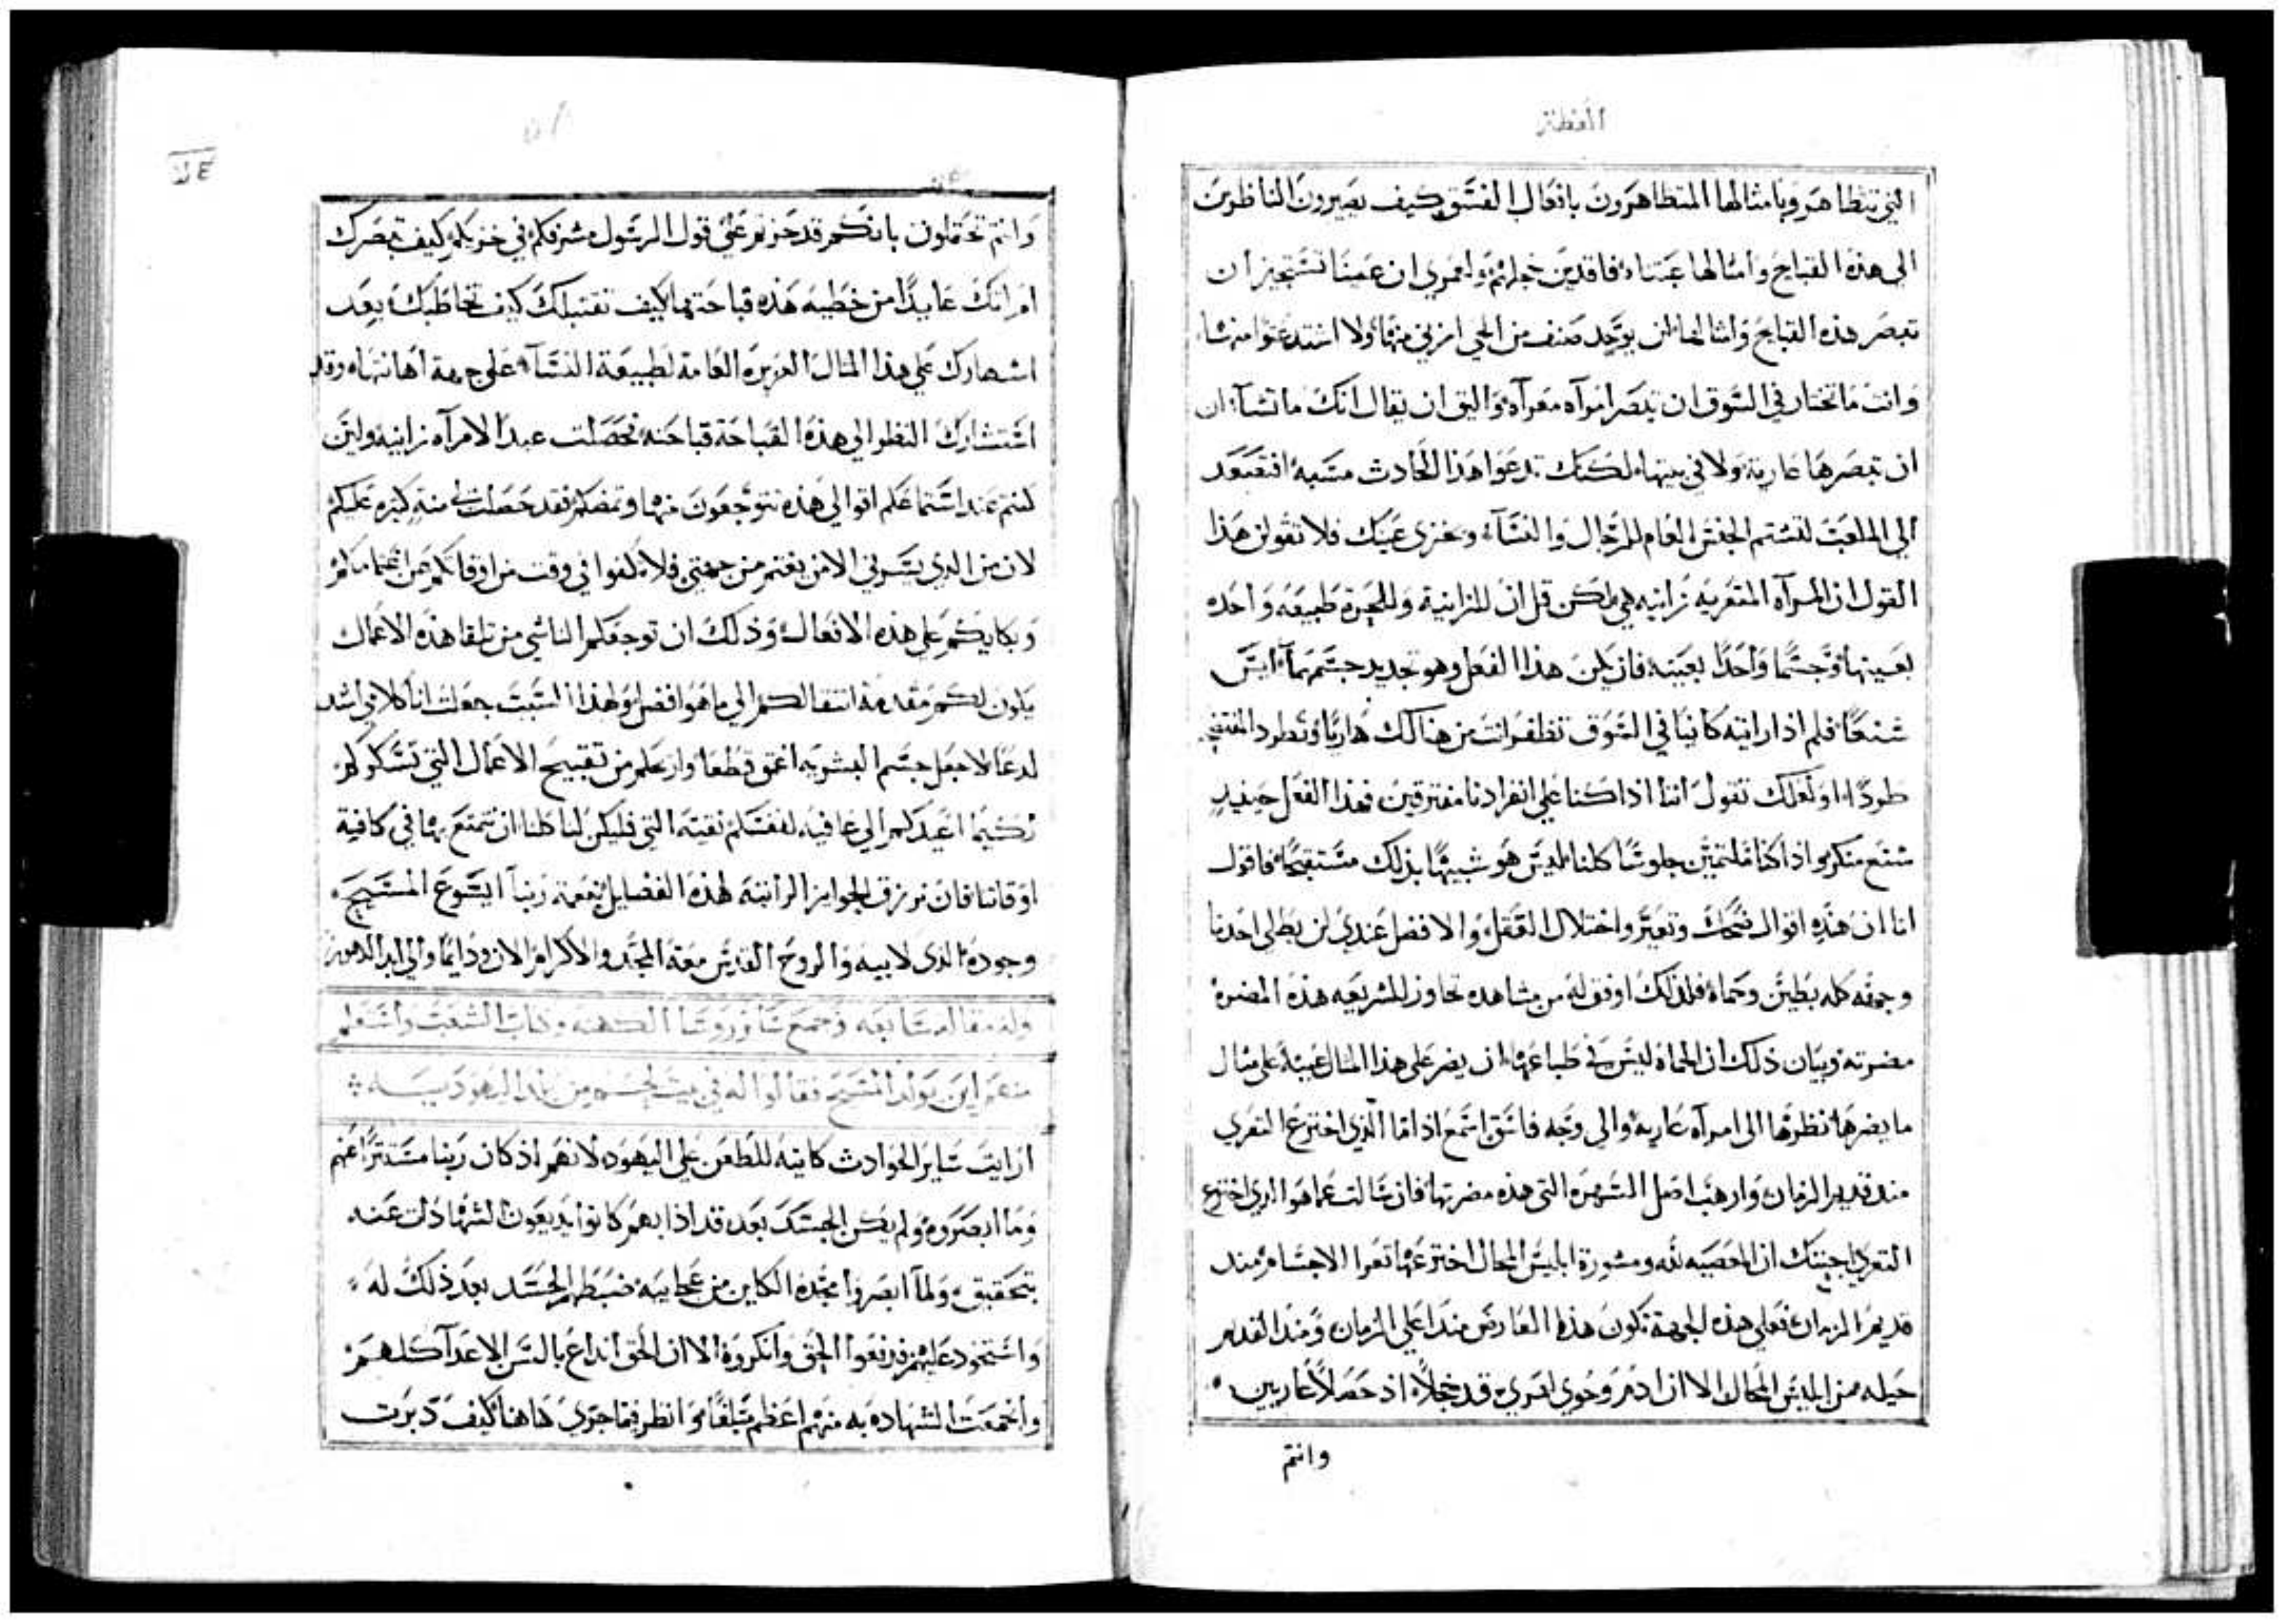 العظة
التي تتظاهر وبامثالها المتظاهرون بافعال الفسق كيف يصيرون الناظرين
الى هذه القبايح وامثالها عبتاه فاقدين خجلهم ولعمري ان عينا تستجيز ان
تبصر هذه القبايح وامثالها لن يوجد صنف من الحي ازني منها ولا اشد عتوا منها
وانت ما تختار في السوق ان تبصر امراه معراه واليق ان يقال انك ما تشآ ان
ان تبصرها عارية ولا في بيتها لكنك تدعوا هذا الحادث مسبه افتصعد
الي الملعب لتشتم الجنس العام للرجال والنسآ وتخزي عينك فلا تقولن هذا
القول ان المرآه المتعريه زانيه هي لكن قل ان للزانية وللحرة طبيعه واحده
بعينها وجسما واحدا بعينه فان يكن هذا الفعل وهو تجديد جسم ما ليس
شنعا فلم اذا رايته كاينا في السوق تظفر انت من هنالك هاربا وتطرد المفتضح
طردا او لعلك تقول اننا اذا كنا علي انفرادنا مفترقين فهذا الفعل حينيذ
شنع منكر واذا كنا ملتمين جلوسا كلنا ليس هو شبيها بذلك مستقبحا فاقول
انا ان هذه اقوال ضحك وتعير واختلال العقل والافضل عندي لن يطلي احدنا
وجهه كله بطين وحماه فلذلك اوفق له من مشاهده تجاوز للشريعه هذه المضره
مضرته وبيان ذلك ان الحماه ليس في طباعها ان يضر على هذا المثال عينه على مثال
ما يضرها نظرها الى امراه عاريه والى وجه فاسق اسمع اذا ما الذي اخترع التعري
مند قديم الزمان وارهب اصل الشهره التي هذه مضرتها فان سالت عما هو الذي اخترع
التعري اجبتك ان المعصيه لله ومشورة ابليس المحال اخترعها تعرا الاجسام مند
قديم الزمان فعلي هذه الجهة تكون هذا العارض مندا علي الزمان ومند القديم
حيله من ابليس المحال الا ان ادم وحوي لعري قد خجلا اذ حصلا عاريين
وانتم
وانتم تختملون بانكم قد حزتم علي قول الرسول شرفكم في خزيكم كيف تبصرك
امراتك عايدا من خطيه هذه قباحتها كيف تقتبلك كيف تخاطبك بعد
اشهارك علي هذا المثال الغريره العامة لطبيعة النسآ علي جهة اهانتها وقد
استشارك النظر الي هذه القباحة قباحته فحصلت عبدا لامرآه زانيه ولين
كنتم عند استماعكم اقوالي هذه تتوجعون منها وتمضكم فقد حصلت لي منة كبيره عليكم
لان من الذي يسرني الا من يغتم من جهتي فلا تكفوا في وقت من اوقاتكم عن اغتمامكم
وبكايكم علي هذه الافعال وذلك ان توجعكم الناشي من تلقا هذه الاعمال
يكون لكم مقدمة انتقالكم الي ما هو افضل ولهذا السبب جعلت انا كلامي اشد
لدعا لاجعل جسم البشريه اعمق قطعا واريحكم من تقبيح الاعمال التي تسكركم
لكيما اعيدكم الي عافيه لنفسكم نقيه التي فليكن لنا كلنا ان نتمتع بها في كافية
اوقاتنا فان نرزق الجوايز الراتبه لهذه الفضايل بنعمة ربنا ايسوع المسيح
وجوده الذي لابيه والروح القدس معه المجد والاكرام الان ودايما والي ابد الدهور
وله مقاله سابعه وجمع سايررووسا الكهنه وكتاب الشعب واستعلم
منهم اين يولد المسيح فقالوا له في بيت لحم من بلد اليهوديه
ارايت ساير الحوادث كاينه للطعن علي اليهود لانهم اذ كان ربنا مستترا عنهم
وما ابصروه ولم يكن الحسد بعد قد اذا بهم كانوا يديعون الشهادات عنه
بتحقيق ولما ابصروا مجده الكاين من عجايبه ضبطهم الحسد بعد ذلك له
واستحوذ عليهم فدفعوا الحق وانكروه الا ان الحق انداع بالسن الاعدآ كلهم
واجمعت الشهاده به منهم اعظم مبلغا وانظر فيما جري هاهنا كيف دبرت